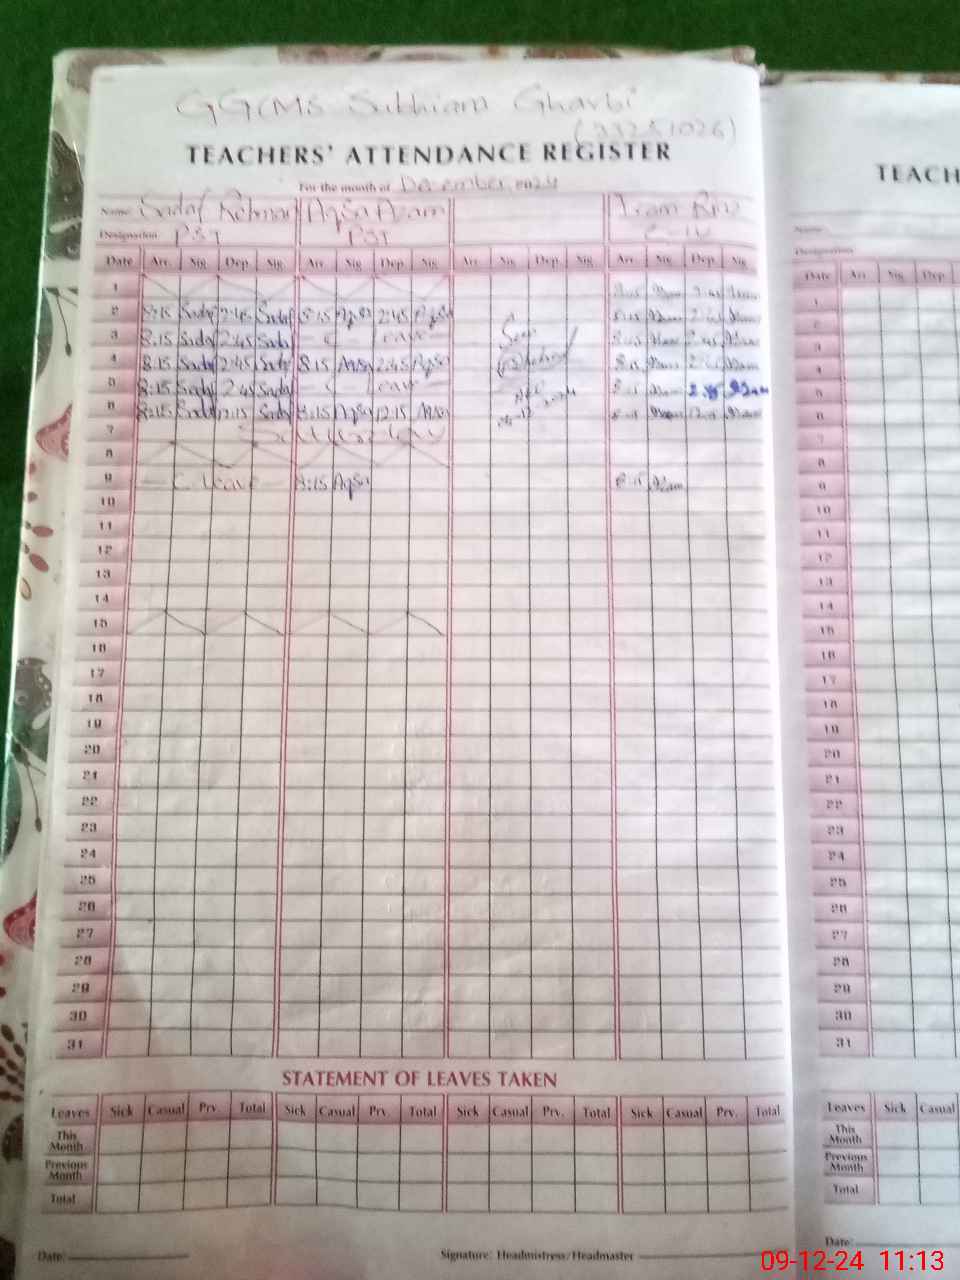 GGCMS Sukhiam Gharbi
(33251026)
TEACHERS' ATTENDANCE REGISTER
For the month of December 2024
Name Sadaf Rehman Aqsa Azam
Designation PST PST
Date Arr. Sig. Dep. Sig. Arr. Sig. Dep. Sig. Arr. Sig. Dep. Sig. Arr. Sig. Dep. Sig.
1
2 8:15 Sadaf 2:45 Sadaf 8:15 Aqsa 2:45 Aqsa
3 8:15 Sadaf 2:45 Sadaf - C - leave -
4 8:15 Sadaf 2:45 Sadaf 8:15 Aqsa 2:45 Aqsa
5 8:15 Sadaf 2:45 Sadaf - C - leave - 2:45
6 8:15 Sadaf 12:15 Sadaf 8:15 Aqsa 12:15 Aqsa
7 Saturday
8
9 - C. leave - 8:15 Aqsa 8:15 Azam
10
11
12
13
14
15
16
17
18
19
20
21
22
23
24
25
26
27
28
29
30
31
STATEMENT OF LEAVES TAKEN
Leaves Sick Casual Prv. Total Sick Casual Prv. Total Sick Casual Prv. Total Sick Casual Prv. Total
This Month
Previous Month
Total
Date: Signature: Headmistress/Headmaster
TEACH
Name
Designation
Date Arr Sig Dep
1
2
3
4
5
6
7
8
9
10
11
12
13
14
15
16
17
18
19
20
21
22
23
24
25
26
27
28
29
30
31
Leaves Sick Casual
This Month
Previous Month
Total
Date:
09-12-24 11:13